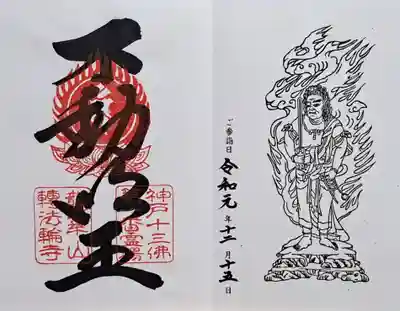 不動明王
神戸十三佛
番靈場
龍華山
轉法輪寺
ご参詣日 令和元年十二月十五日